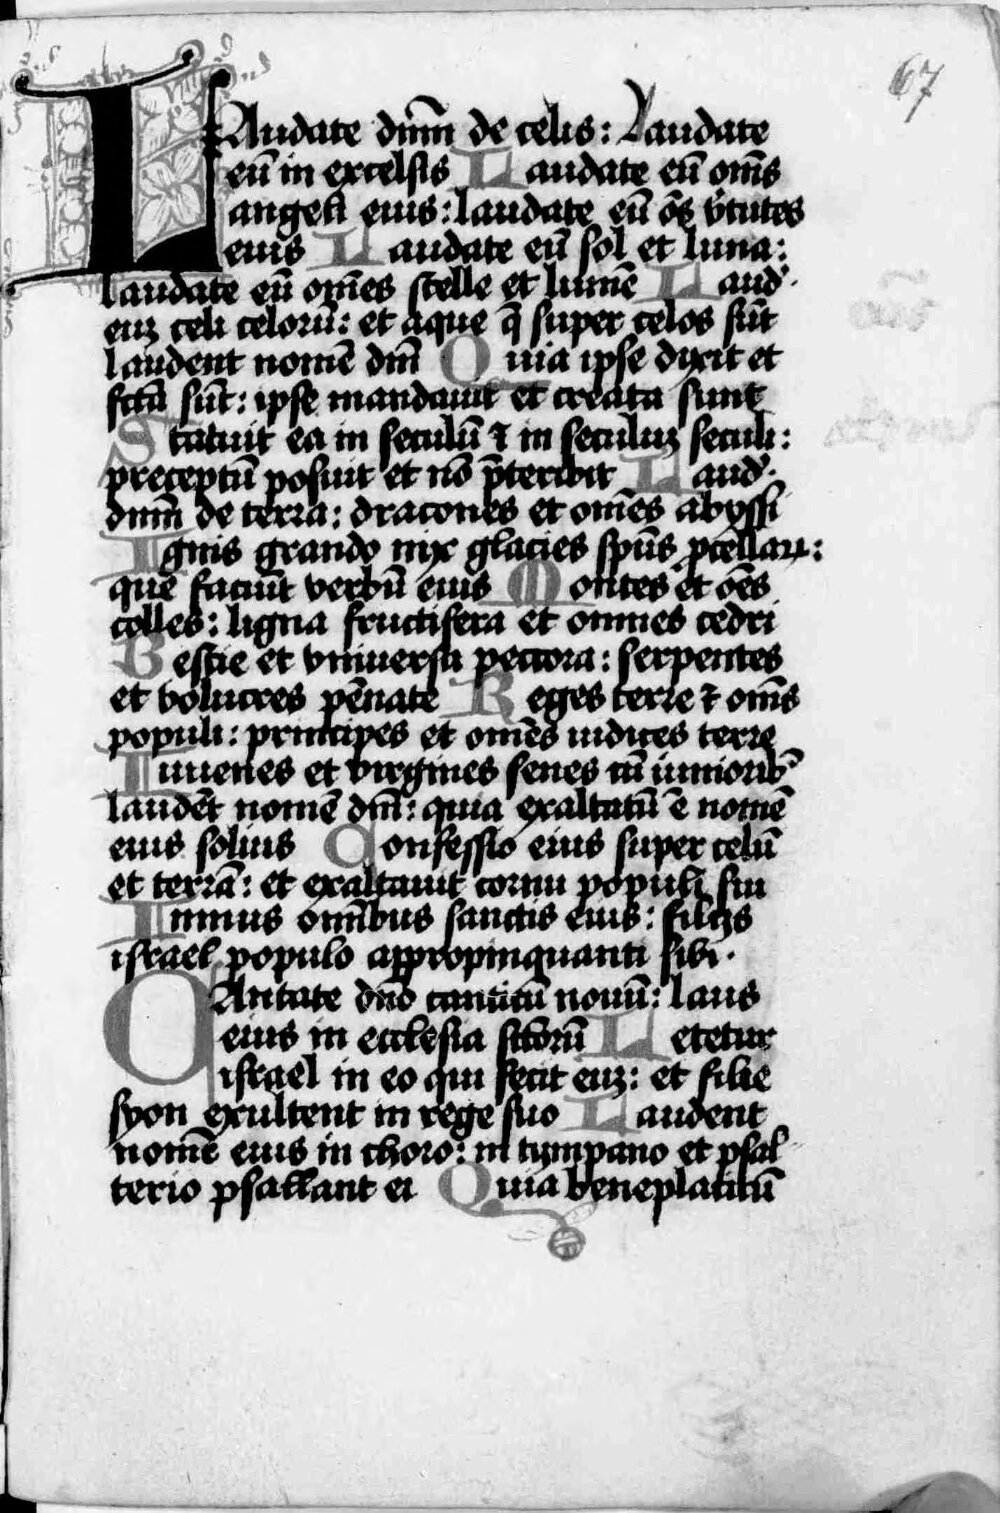 67
LAudate dnm̄ de celis: Laudate
eū in excelsis Laudate eū om̄s
angeli eius: laudate eū ōs v̓tutes
eius Laudate eū sol et luna:
laudate eū om̄es stelle et lumē Laud̓
euȝ celi celorū: et aque q̄ super celos sūt
laudent nomē dn̄i Quia ipse dixit et
fctā sūt: ipse mandauit et creata sunt
Statuit ea in seculū ⁊ in seculuȝ seculi:
preceptū posuit et nō p̄teribit Laud̓
dnm̄ de terra: dracones et om̄es abyssi
Ignis grando nix glacies spūs ꝓcellaꝝ:
que faciūt verbū eius Montes et oēs
colles: ligna fructifera et omnes cedri
Bestie et vniuersa pecora: serpentes
et volucres pēnate Reges terre ⁊ om̄s
populi: principes et om̄es iudices terre
Iuuenes et virgines senes cū iuniorib̄
laudēt nomē dn̄i: quia exaltatū ē nomē
eius solius Confessio eius super celū
et terrā: et exaltauit cornu populi sui
Imnus om̄ibus sanctis eius: filijs
israel populo appropinquanti sibi.
CAntate dn̄o canticū nouū: laus
eius in ecclesia sctōrū Letetur
israel in eo qui fecit euȝ: et filie
syon exultent in rege suo Laudent
nomē eius in choro: in tympano et psal
terio psallant ei Quia beneplacitū